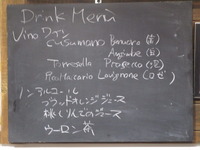 Drink Menu
Vino ワイン
Cusumano Benuara (赤)
Angimbe (白)
Torresella Prosecco (泡)
(ロゼ)
ノンアルコール
ブラッドオレンジジュース
桃とりんごのジュース
ウーロン茶